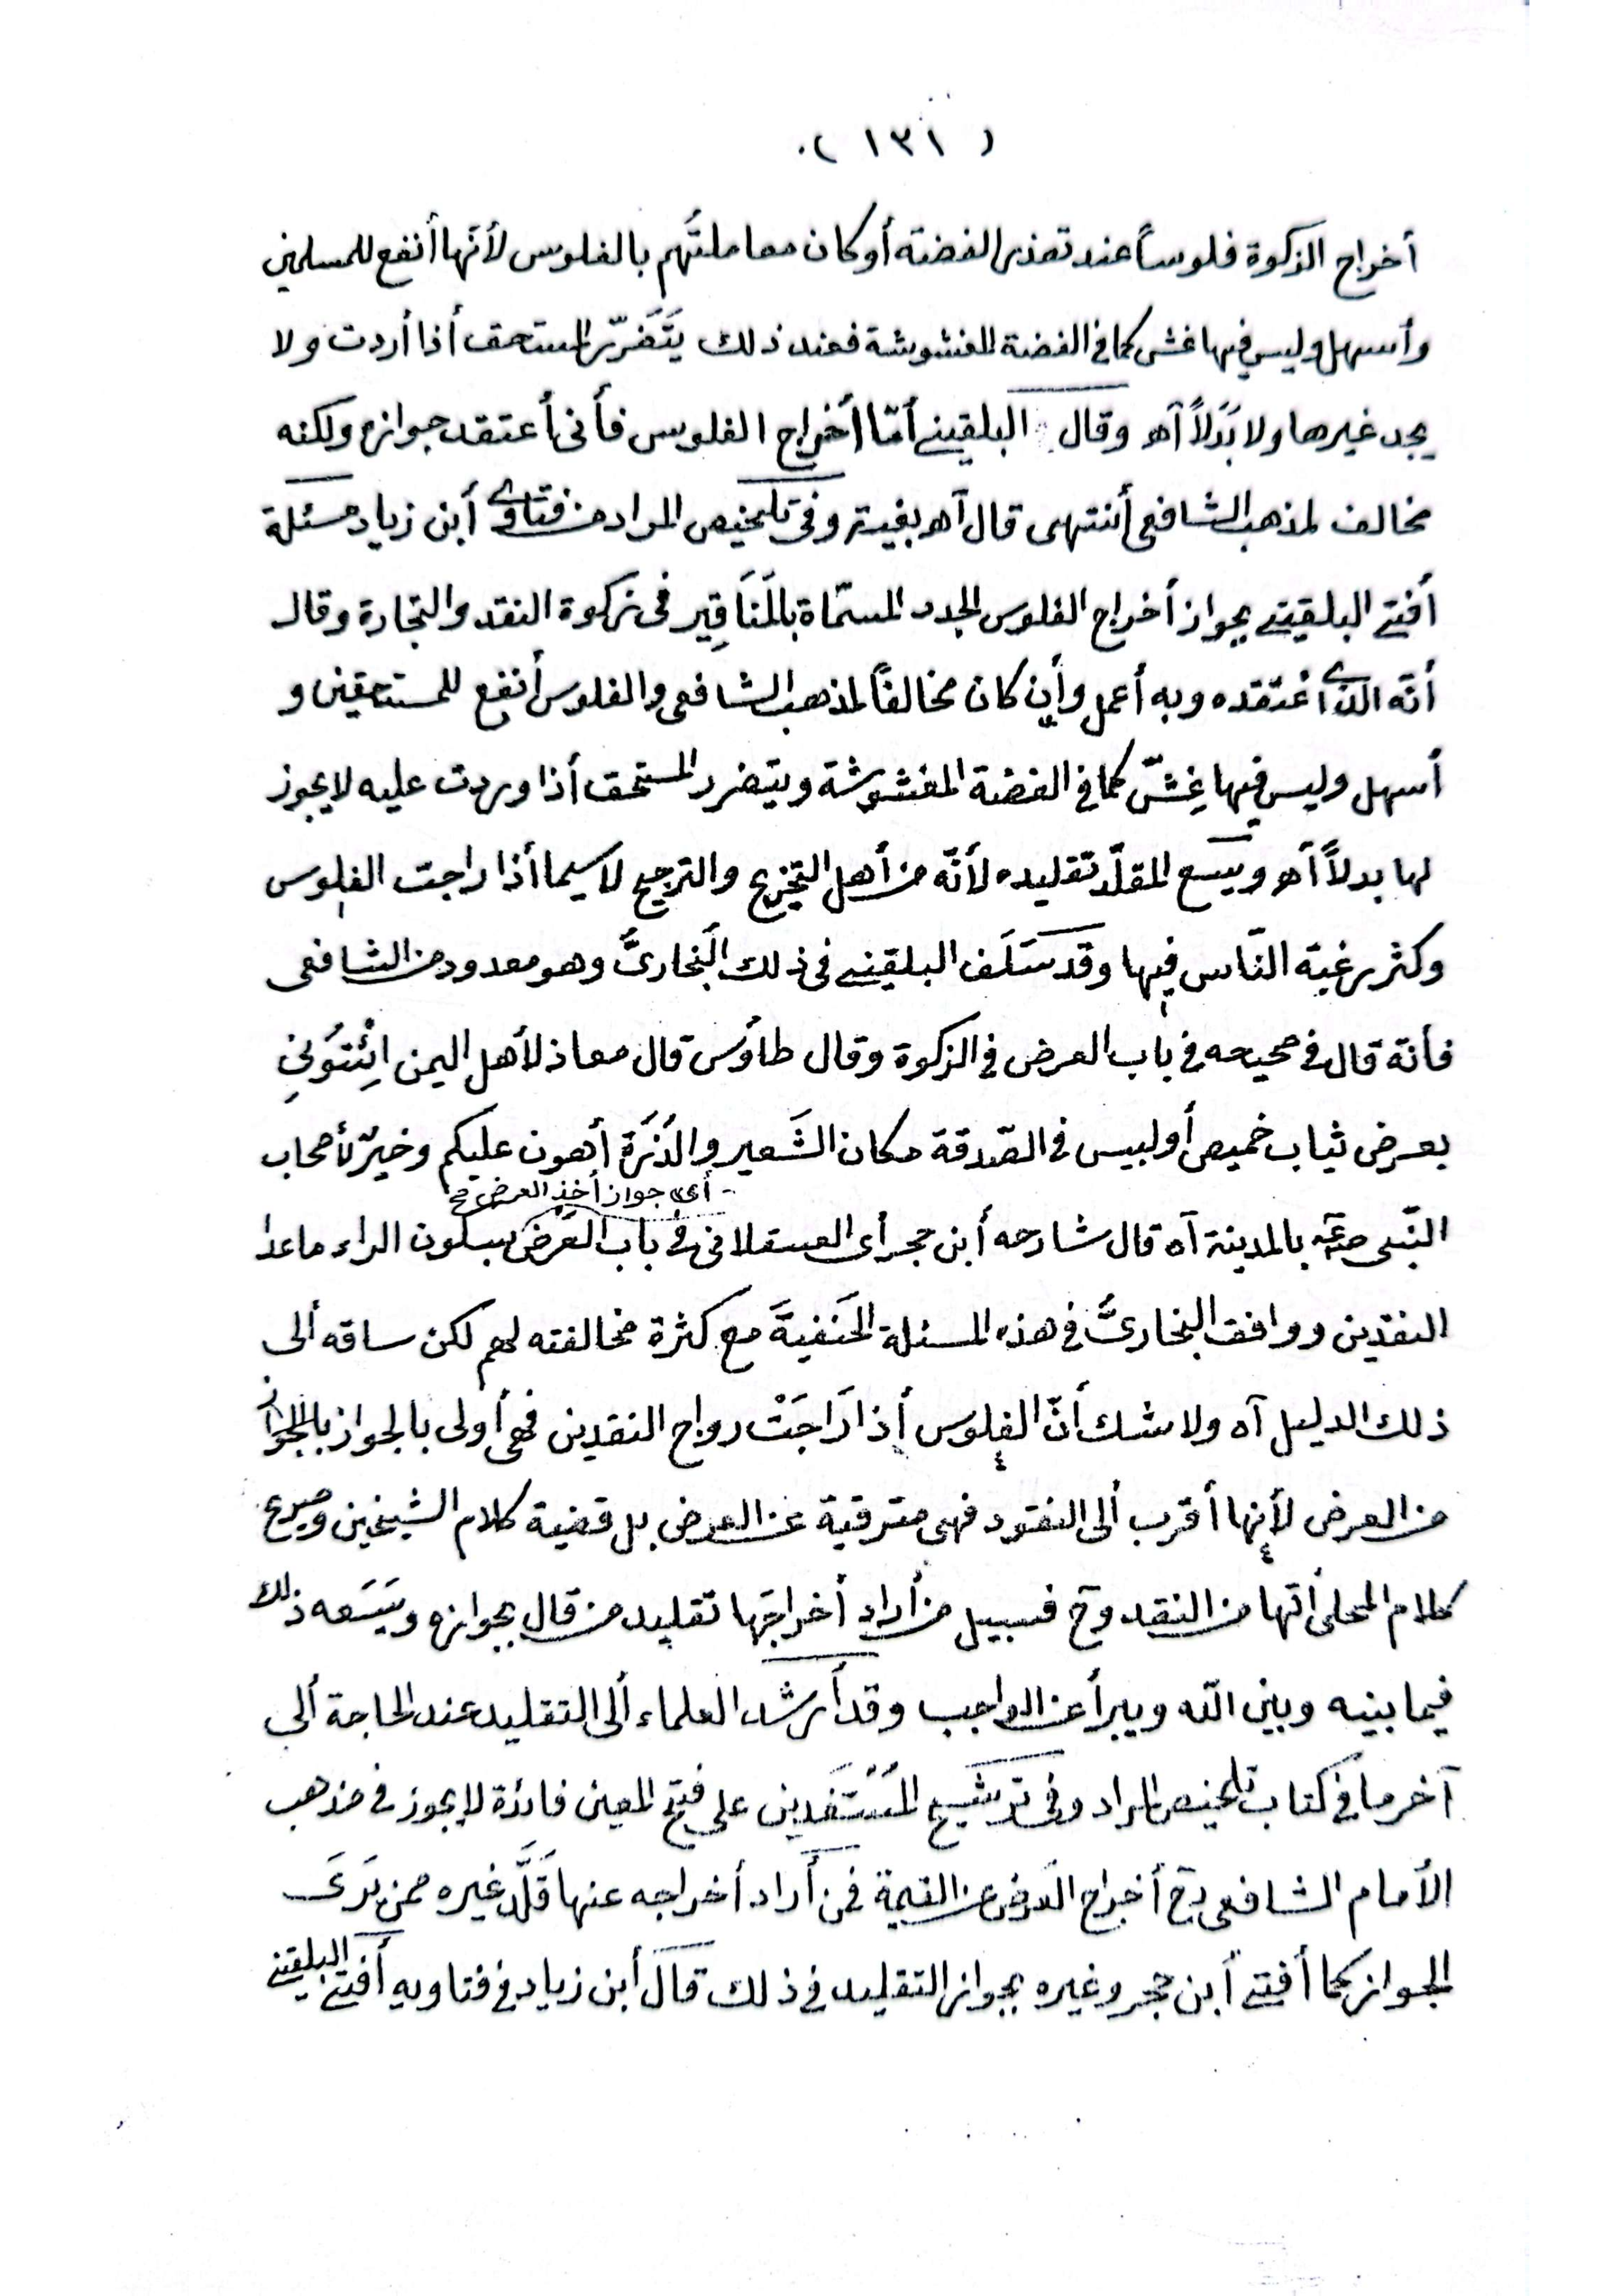 ( ١٣١ )
أخراج الزكوة فلوساً عند تعذر الفضته أو كان معاملتُهم بالفلوس لأنّها أنفع للمسلمين
وأسهل وليس فيها غش كما فى الفضة المغشوشة فعند ذلك يَتَضَرّر المستحق أذا أردت ولا
يجد غيرها ولا بَدَلاً آهـ وقال البلقينى أمّا أخراج الفلوس فأنى أعتقد جوازه ولكنه
مخالف لمذهب الشافعى أنتهى قال آهـ بغية وفى تلخيص المراد من فتاوى أبن زياد مسئلة
أفتى البلقينى بجواز أخراج الفلوس الجدد المسمّاة بالمَنَاقِير فى زكوة النقد والتجارة وقال
أنّه الذى أعْتقده وبه أعمل وأن كان مخالفاً لمذهب الشافعى والفلوس أنفع للمستحقين و
أسهل وليس فيها غِشّ كما فى الفضة المغشوشة ويتضرر المستحق أذا وردت عليه لا يجوز
لها بدلاً آهـ ويسع المقلّد تقليده لأنّه من أهل التخريج والترجيح لاسيما أذا راجت الفلوس
وكثر رغبة النّاس فيها وقد سَلَف البلقينى فى ذلك البُخارىَّ وهو معدود من الشافعى
فأنّه قال فى صحيحه فى باب العرض فى الزكوة وقال طاؤس قال معاذ لأهل اليمن ائْتُونِى
بعرض ثياب خميص أو لبيس فى الصّدقة مكان الشَعير والذُرَة أهون عليكم وخيرٌ لأصحاب
أى جواز أخذ العرض صح
النّبى صلعم بالمدينة آه قال شارحه أبن حجر أى العسقلانى فى باب العَرْض بسكون الراء ماعدا
النقدين ووافق البخارىَّ فى هذه المسئلة الحَنَفيةَ مع كثرة مخالفته لهم لكن ساقه ألى
ذلك الدليل آه ولا شك أنّ الفلوس أذا رَاجَتْ رواج النقدين فهى أولى بالجواز بالجواز
من العرض لأنها أقرب ألى النقود فهى مترقية عن العرض بل قضية كلام الشيخين وصريح
كلام المحلى أنّها من النقد وح فسبيل من أراد أخراجَها تقليد من قال بجوازه ويَسَعه ذلك
فيما بينه وبين الله ويبرأ عن الواجب وقد أرشد العلماء ألى التقليد عند الحاجة ألى
آخر ما فى كتاب تلخيص المراد وفى ترشيح المُسْتَفدين على فتح المعين فائدة لا يجوز فى مذهب
الأمام الشافعى رح أخراج العَرض عن القيمة فمن أراد أخراجه عنها قَلَّد غيره ممن يَرَى
الجواز كما أفتى أبن حجر وغيره بجواز التقليد فى ذلك قال أبن زياد فى فتاويه أفتى البلقينى